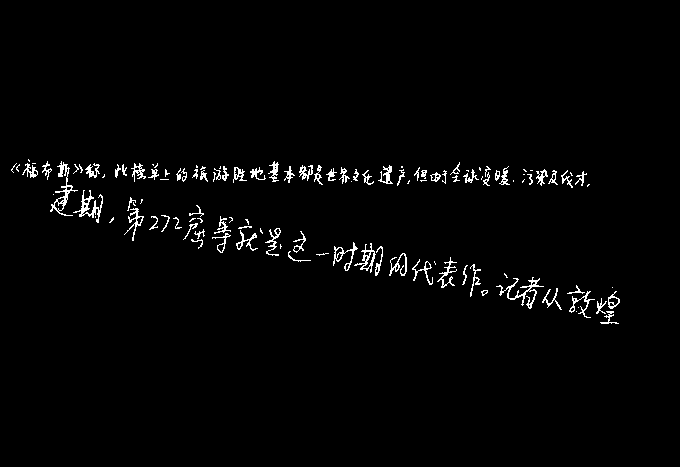 《福布斯》称，此榜单上的旅游胜地基本都是世界文化遗产，但由于全球变暖、污染及伐木，
建期，第272窟等就是这一时期的代表作。记者从敦煌